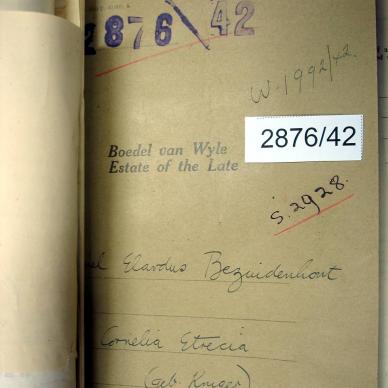 2876/42
W.1992/42.
Boedel van Wyle
Estate of the Late
2876/42
S.2928.
Elardus Bezuidenhout
Cornelia Etrecia
(geb. Kruger)